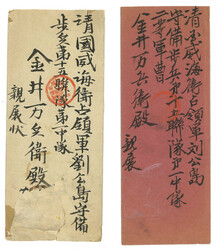 清國威海衛占領軍劉公島守備
歩兵第十五聯隊第一中隊
金井万兵衛殿
親展状
清国威海衛占領軍刘公島
守備歩兵第十五聯隊第一中隊
金井万兵衛殿
親展